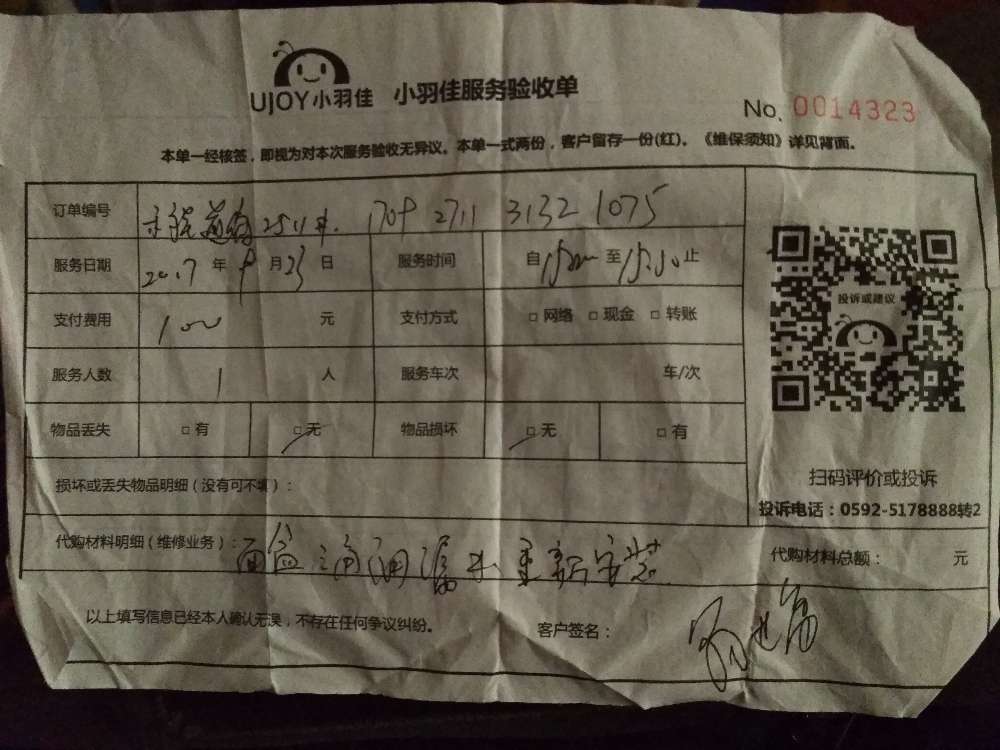 UJOY小羽佳 小羽佳服务验收单
No. 0014323
本单一经核签，即视为对本次服务验收无异议。本单一式两份，客户留存一份(红)。《维保须知》详见背面。
订单编号 2511 1709 2711 3132 1075
服务日期 2017 年 9 月 23 日 服务时间 自 至 15:50 止
支付费用 100 元 支付方式 □ 网络 □ 现金 □ 转账
服务人数 1 人 服务车次 车/次
物品丢失 □ 有 □ 无 物品损坏 □ 无 □ 有
投诉或建议
扫码评价或投诉
投诉电话：0592-5178888转2
损坏或丢失物品明细（没有可不填）：
代购材料明细（维修业务）：面盆 漏水重新安装
代购材料总额： 元
以上填写信息已经本人确认无误，不存在任何争议纠纷。 客户签名：